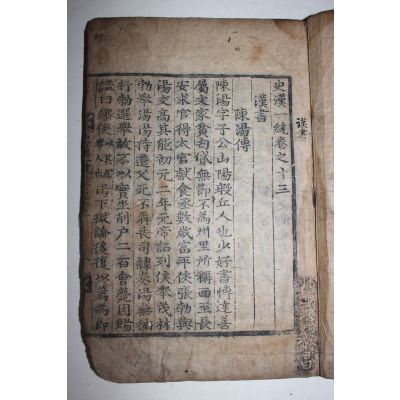 史漢一統卷之十三
漢書
陳湯傳
陳湯字子公山陽瑕丘人也少好書博達善
屬文家貧匄貸無節不為州里所稱西至長
安求官得太官獻食丞數歲富平侯張勃與
湯交高其能初元二年元帝詔列侯舉茂材
勃舉湯湯待遷父死不犇喪司隸奏湯無循
行勃選舉故不以實坐削户二百會薨因賜
謚曰繆侯 湯下獄論後復以薦為郎
漢書